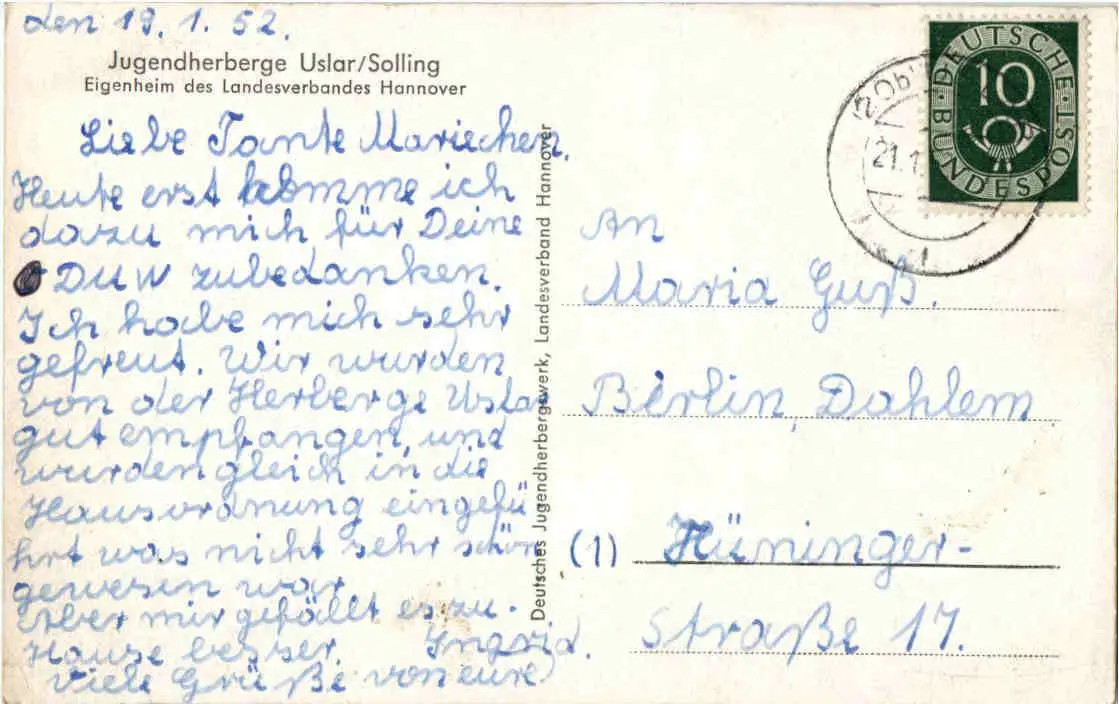 den 19. 1. 52.
Jugendherberge Uslar/Solling
Eigenheim des Landesverbandes Hannover
Liebe Tante Mariechen,
Heute erst komme ich
dazu mich für Deine
DUW zubedanken.
Ich habe mich sehr
gefreut. Wir wurden
von der Herberge Uslar
gut empfangen, und
wurden gleich in, die
Hausordnung eingefü
hrt was nicht sehr schön
gewesen war
Aber mir gefällt es zu.
Hause besser.
Viele Grüße von eure
Ingrid.
Deutsches Jugendherbergswerk, Landesverband Hannover
DEUTSCHE
BUNDESPOST
10
21.1
An
Maria Guß.
Berlin, Dahlem
(1) Hüninger-
Straße 17.